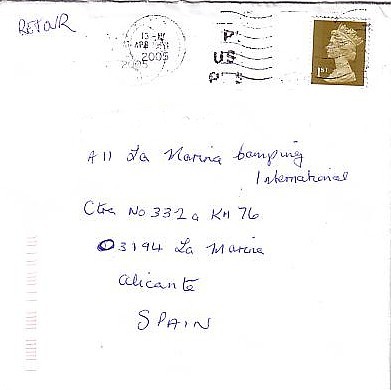 RETOUR
13-IV
2005
2005
P
US
1ST
A11 La Marina Camping
International
Ctra No 332a KM 76
03194 La Marina
Alicante
SPAIN